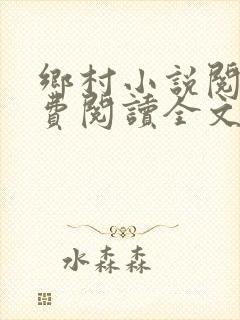 鄉村小說閱
費閱讀全文
水森森